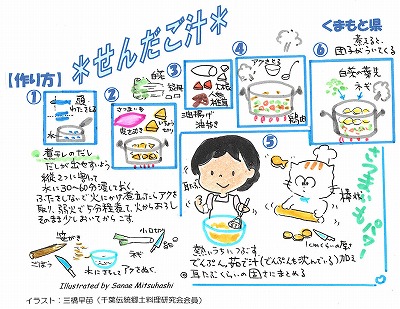 *せんだご汁*
くまもと県
【作り方】
①
頭
わたとる
水
②
さつまいも
皮をむき
いちょう切り
白菜
③
油揚げ
油抜き
④
アクをとる
鶏肉
⑥
煮えると
団子がういてくる
白菜の葉先
ネギ
◎煮干しのだし
だしが出やすいよう
縦2つに割って
水に30〜60分浸しておく。
ふたをしないで火にかけ煮立ったらアクを
取り、弱火で5分程煮て、火からおろし
そのまま少しおいてからこす。
ごぼう
水にさらしてアクをぬく。
小口切り
⑤
棒状
1cmくらいの厚さ
熱いうちにつぶす。
でんぷん、茹で汁(でんぷんも沈んでいる)加え
◎耳たぶくらいの固さにまとめる
Illustrated by Sanae Mitsuhashi
イラスト:三橋早苗(千葉伝統郷土料理研究会会員)